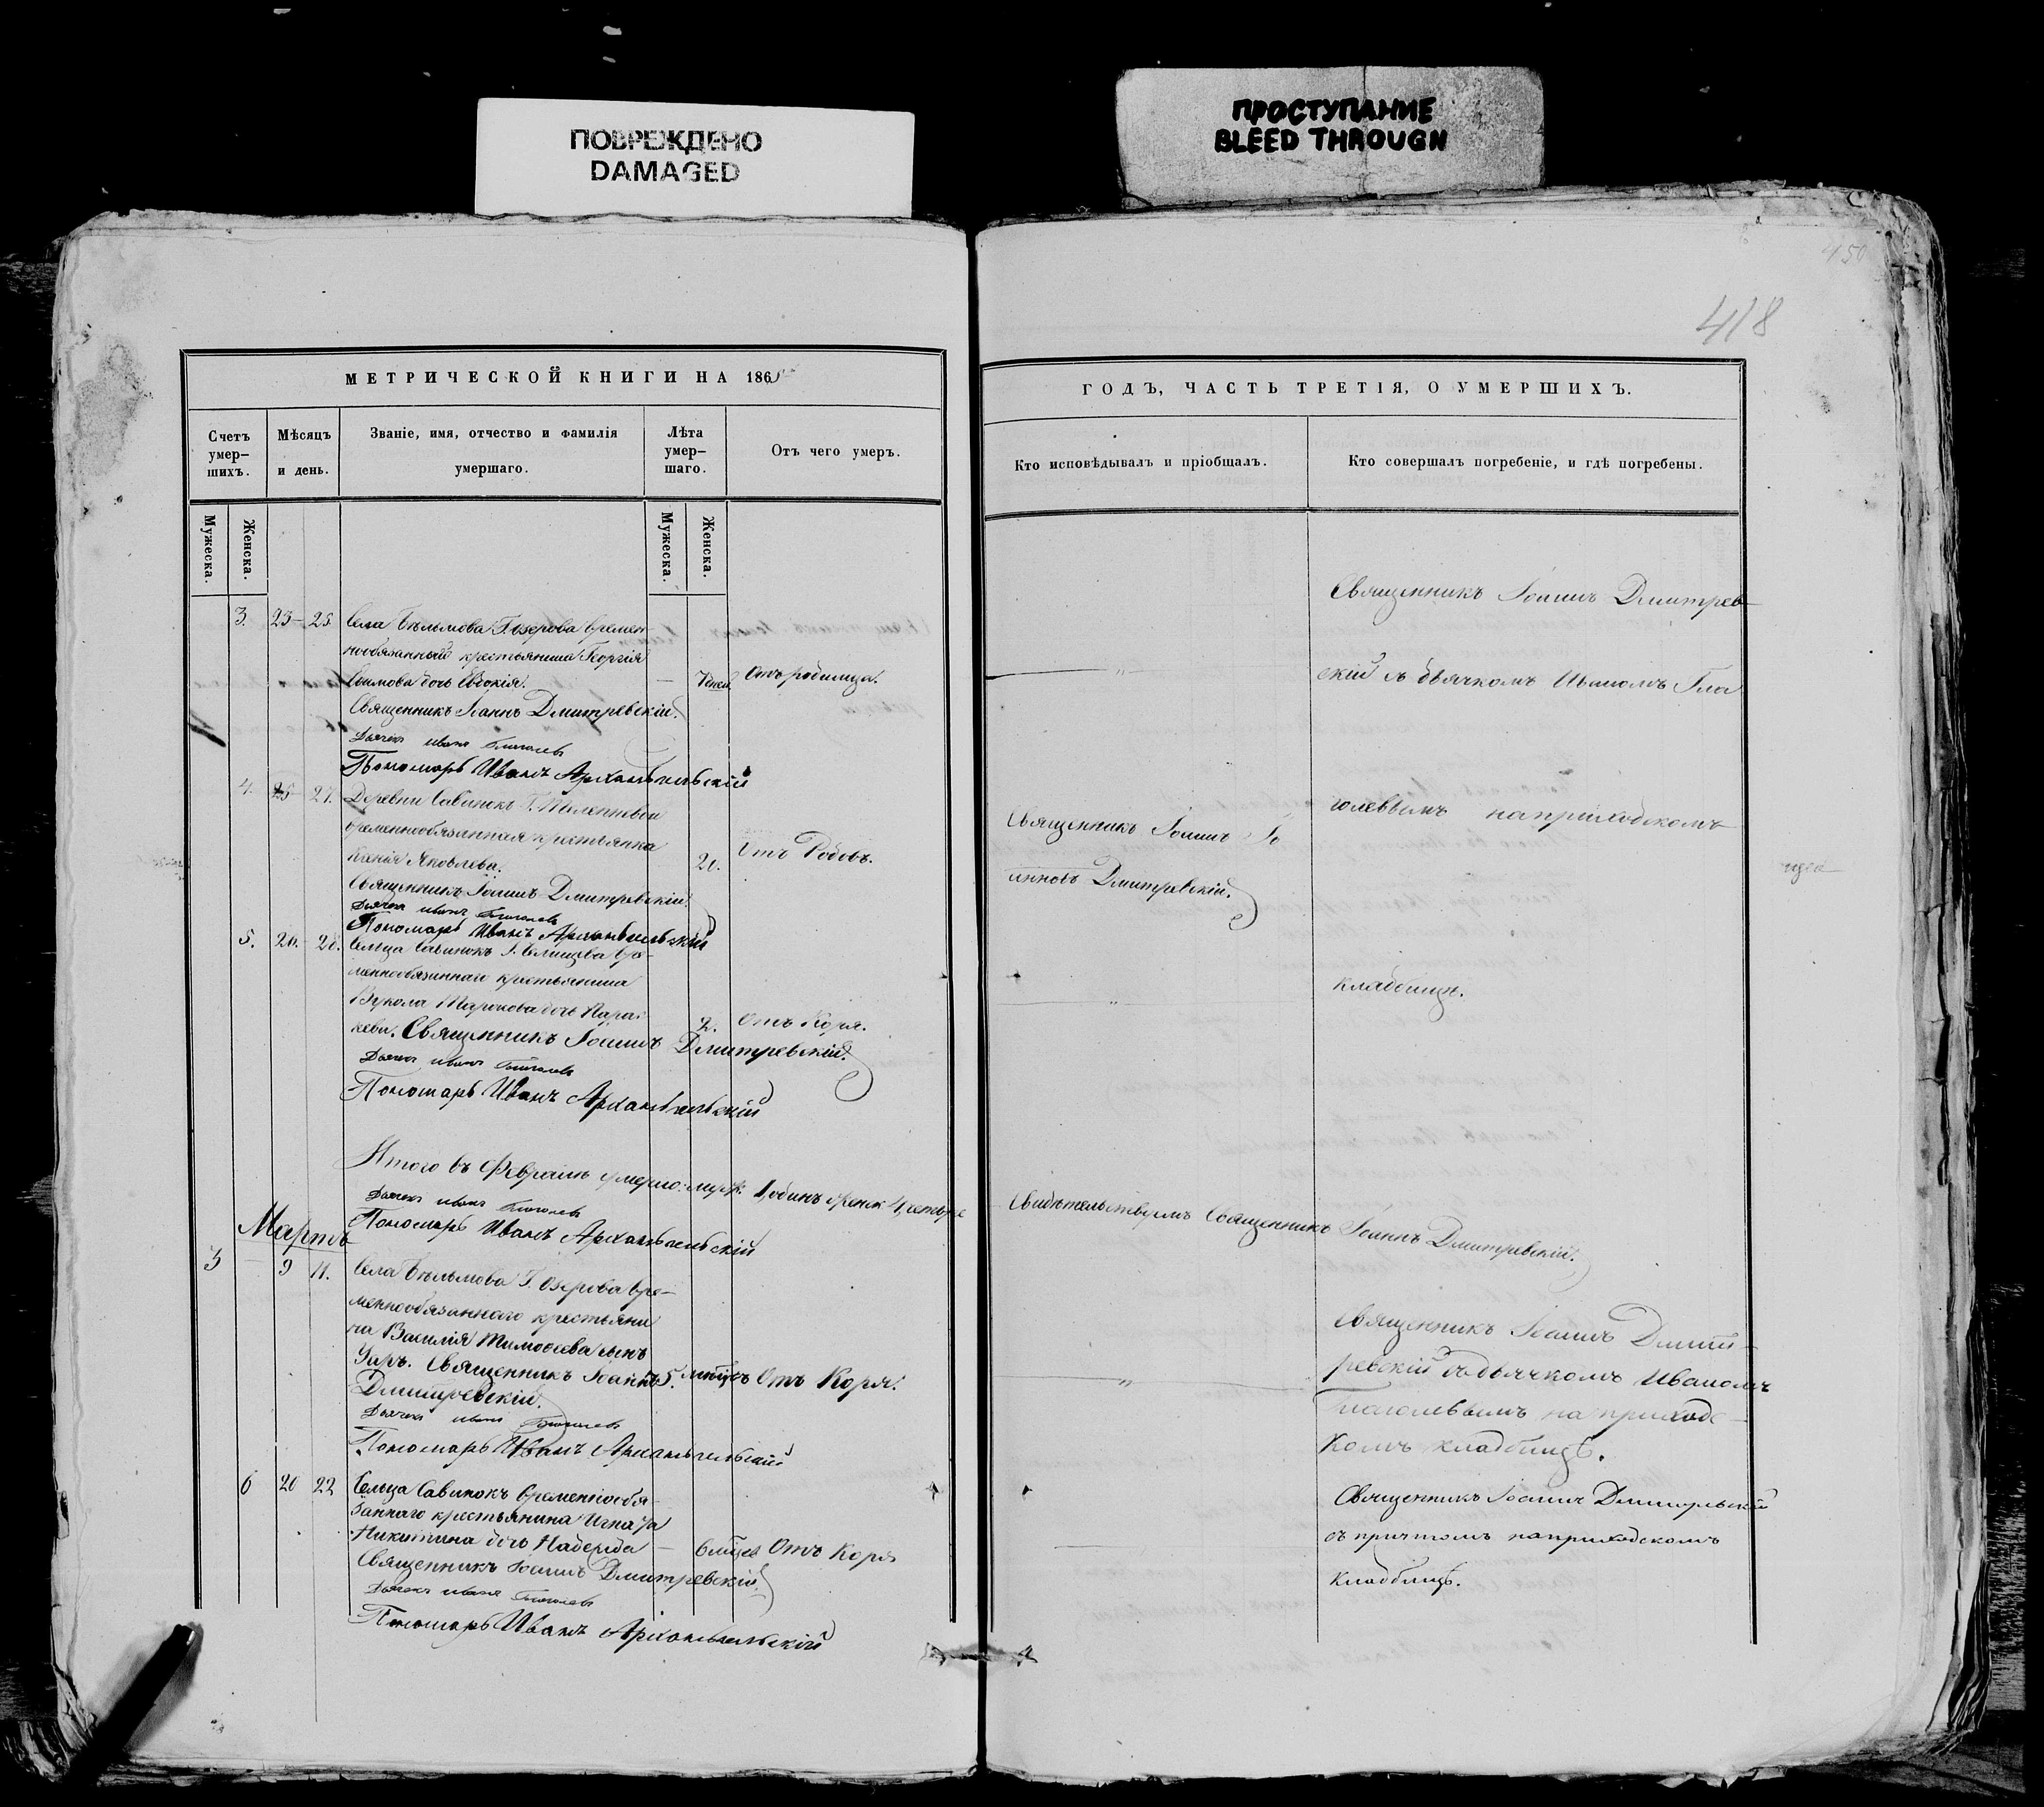 ПОВРЕЖДЕНО
DAMAGED
ПРОСТУПАНИЕ
BLEED THROUGH
450
418
МЕТРИЧЕСКОЙ КНИГИ НА 1865
Счетъ умер-
шихъ.
Мѣсяцъ
и день.
Званіе, имя, отчество и фамилія
умершаго.
Лѣта
умер-
шаго.
Отъ чего умеръ.
Мужеска.
Женска.
Мужеска.
Женска.
3. 23 25. Села Бѣльмова Г. Озерова времен-
нообязанный крестьянина Георгія
дочь Евдокія. — Отъ родимца.
Священникъ Іоаннъ Дмитревскій.
Дьячекъ Иванъ Глаголевъ
Пономарь Иванъ Архангельскій
4. 25 27. Деревни Савинокъ Г.
временнообязанная крестьянка
Яковлева. 20. Отъ Родовъ.
Священникъ Іоаннъ Дмитревскій.
Дьячекъ Иванъ Глаголевъ
Пономарь Иванъ Архангельскій
5. 26. 28. Сельца Савинокъ Г. вре-
меннообязаннаго крестьянина
Вукола Маркова дочь Парас-
кева. Священникъ Іоаннъ Дмитревскій. 2. Отъ Коря.
Дьячекъ Иванъ Глаголевъ
Пономарь Иванъ Архангельскій
Итого въ Февралѣ умерло: муж. 1, одинъ женск 4, четыре
Дьячекъ Иванъ Глаголевъ
Пономарь Иванъ Архангельскій
Мартъ
3 — 9 11. Села Бѣльмова Г. Озерова вре-
меннообязаннаго крестьяни
на Василія Тимофеева сынъ
Уаръ. Священникъ Іоаннъ 5. мѣсц Отъ Коря.
Дмитревскій.
Дьячекъ Иванъ Глаголевъ
Пономарь Иванъ Архангельскій
6 20 22 Сельца Савинокъ временнообя-
заннаго крестьянина Игнатя
Никитина дочь Надежда — 6 мѣсц Отъ Коря
Священникъ Іоаннъ Дмитревскій.
Дьячекъ Иванъ Глаголевъ
Пономарь Иванъ Архангельскій
ГОДЪ, ЧАСТЬ ТРЕТІЯ, О УМЕРШИХЪ.
Кто исповѣдывалъ и пріобщалъ.
Кто совершалъ погребеніе, и гдѣ погребены.
Священникъ Іоаннъ Дмитрев-
скій съ дьячкомъ Иваномъ Гла
Священникъ Іоаннъ Іо
анновъ Дмитревскій.
голевымъ на приходскомъ
кладбищѣ.
Свидѣтельствуемъ Священникъ Іоаннъ Дмитревскій.
Священникъ Іоаннъ Дмит-
ревскій съ дьячкомъ Иваномъ
Глаголевымъ на приходс-
комъ кладбищѣ.
Священникъ Іоаннъ Дмитревскій
съ причтомъ на приходскомъ
кладбищѣ.